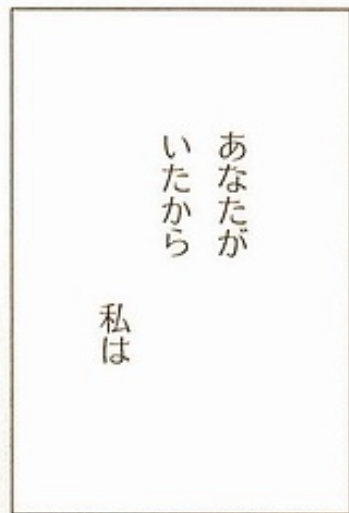 あなたが
いたから
私は